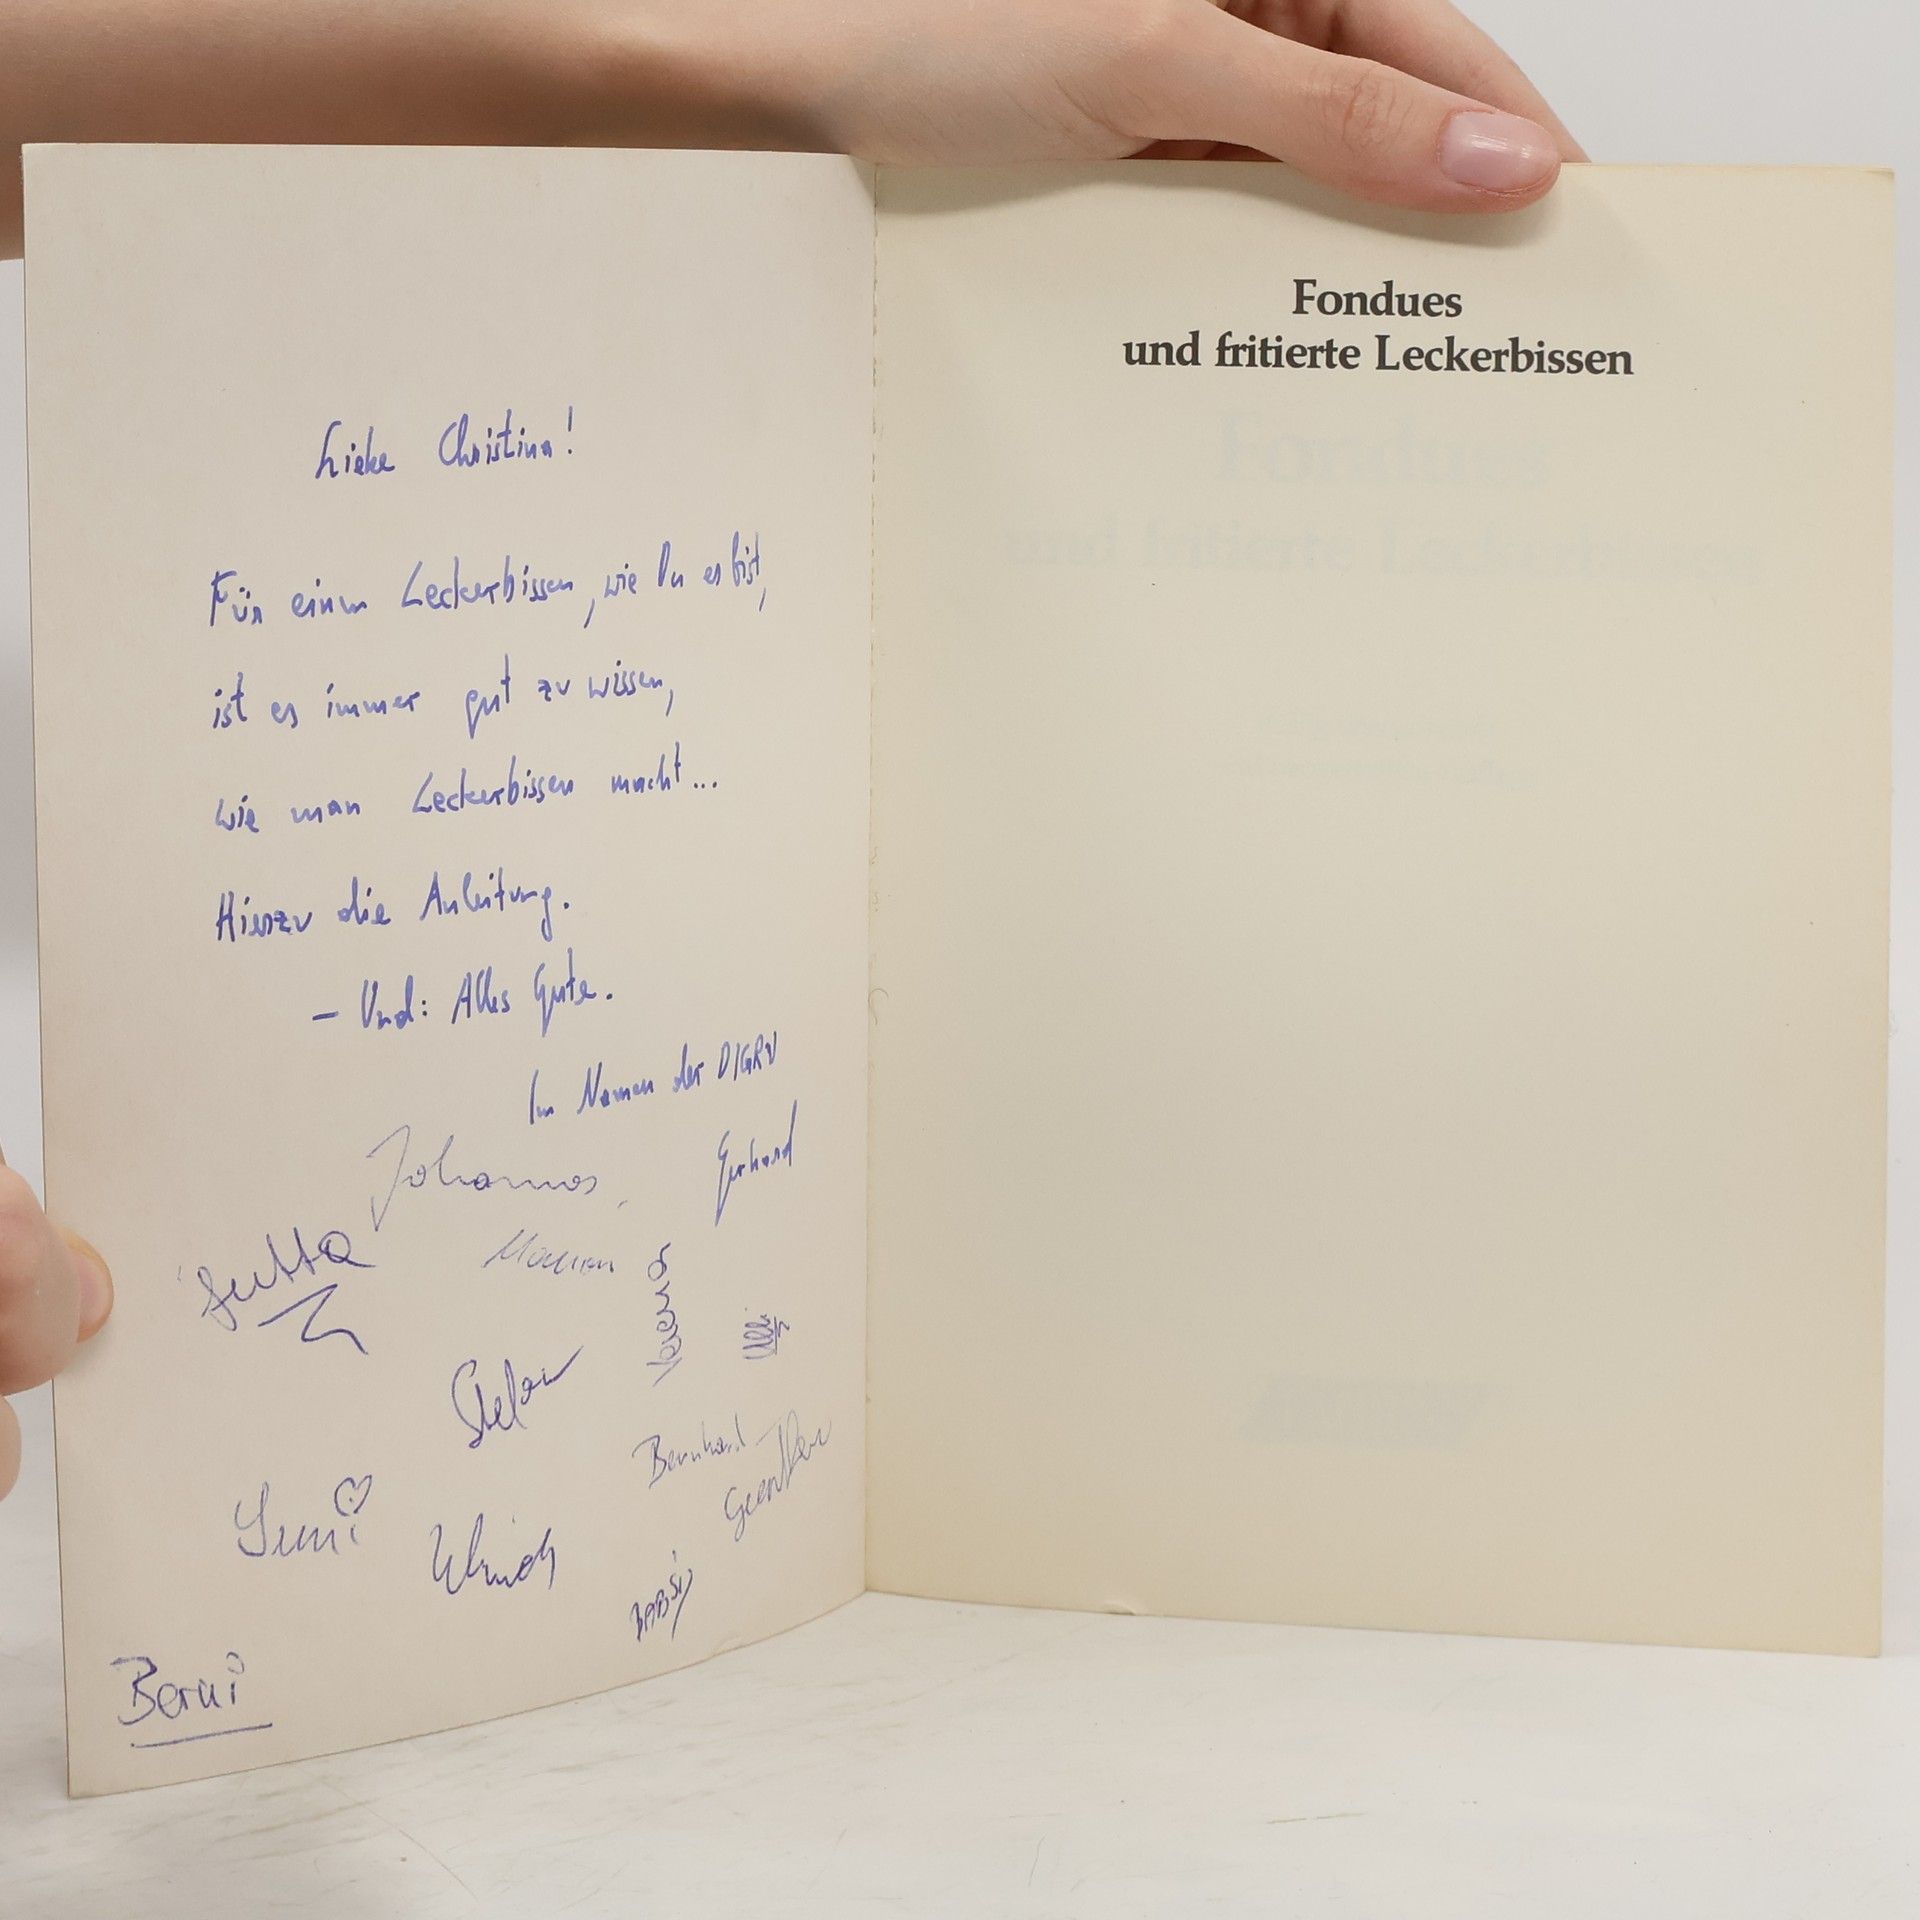 Liebe Christina!
Für einen Leckerbissen, wie Du es bist,
ist es immer gut zu wissen,
wie man Leckerbissen macht...
Hierzu die Anleitung.
– Und: Alles Gute.
Im Namen der DIGRV
Johannes,
Gerhard
Jutta
Marion
Verena
Ulli
Stefan
Bernhard
Guenther
Susi
Ulrich
BABSI
Berni
Fondues
und fritierte Leckerbissen
Fondues